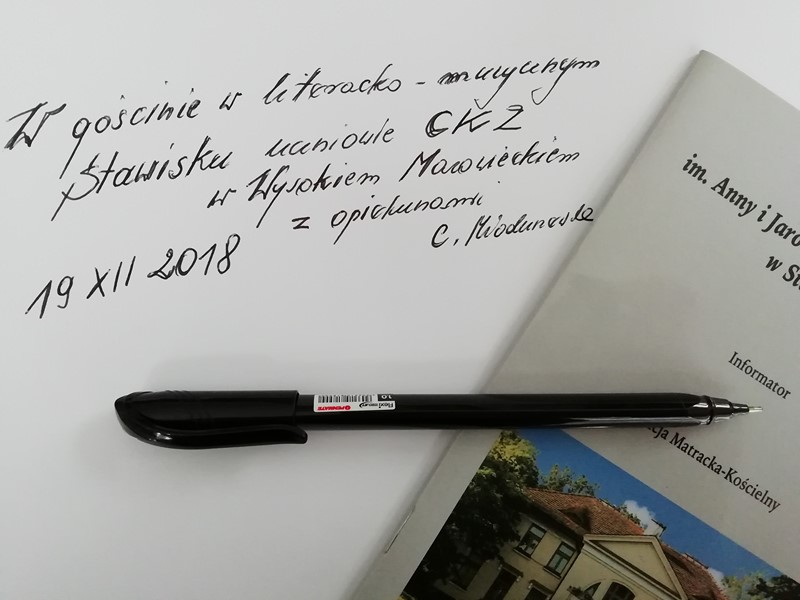 W gościnie w literacko - muzycznym
Stawisku uczniowie CKZ
w Wysokiem Mazowieckiem
z opiekunami
C. Miodunewska
19 XII 2018
im. Anny i Jaro
w St
Informator
cja Matracka-Kościelny
PENMATE
Flexi
1.0